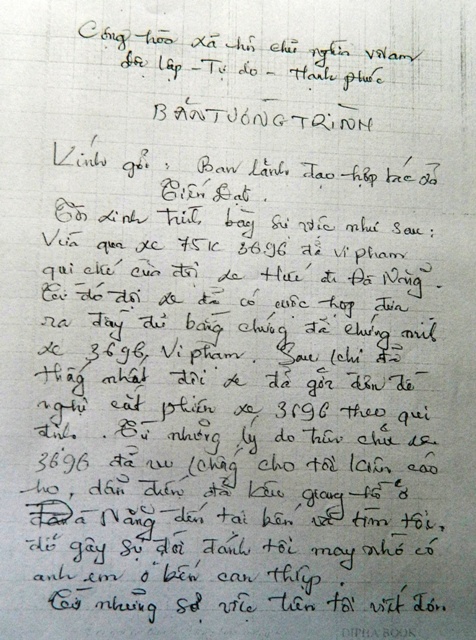 Cộng hòa xã hội chủ nghĩa việt nam
độc lập - Tự do - Hạnh phúc
BẢN TƯỜNG TRÌNH
Kính gởi : Ban lảnh đạo hợp tác xả
Tiến Đạt.
Tôi xinh trình bày sự việc như sau :
Vừa qua xe 75K 3696 đả vi phạm
qui chế của đội xe Huế đi Đà Nẳng.
Từ đó đội xe đả có cuộc họp đưa
ra đầy đủ bằng chứng đả chứng minh
xe 3696 vi phạm. Sau khi đả
thống nhất đội xe đả gởi đơn đề
nghị cắt phiên xe 3696 theo qui
định. Từ những lý do trên chủ xe
3696 đả vu khống cho tôi kiện cáo
họ, dẩn đến đả kêu giang hồ ở
Đà Nẳng đến tại bến xe tìm tôi,
để gây sự đòi đánh tôi may nhờ có
anh em ở bến can thiệp.
Từ những sự việc trên tôi viết đơn.
DIPHA BOOK